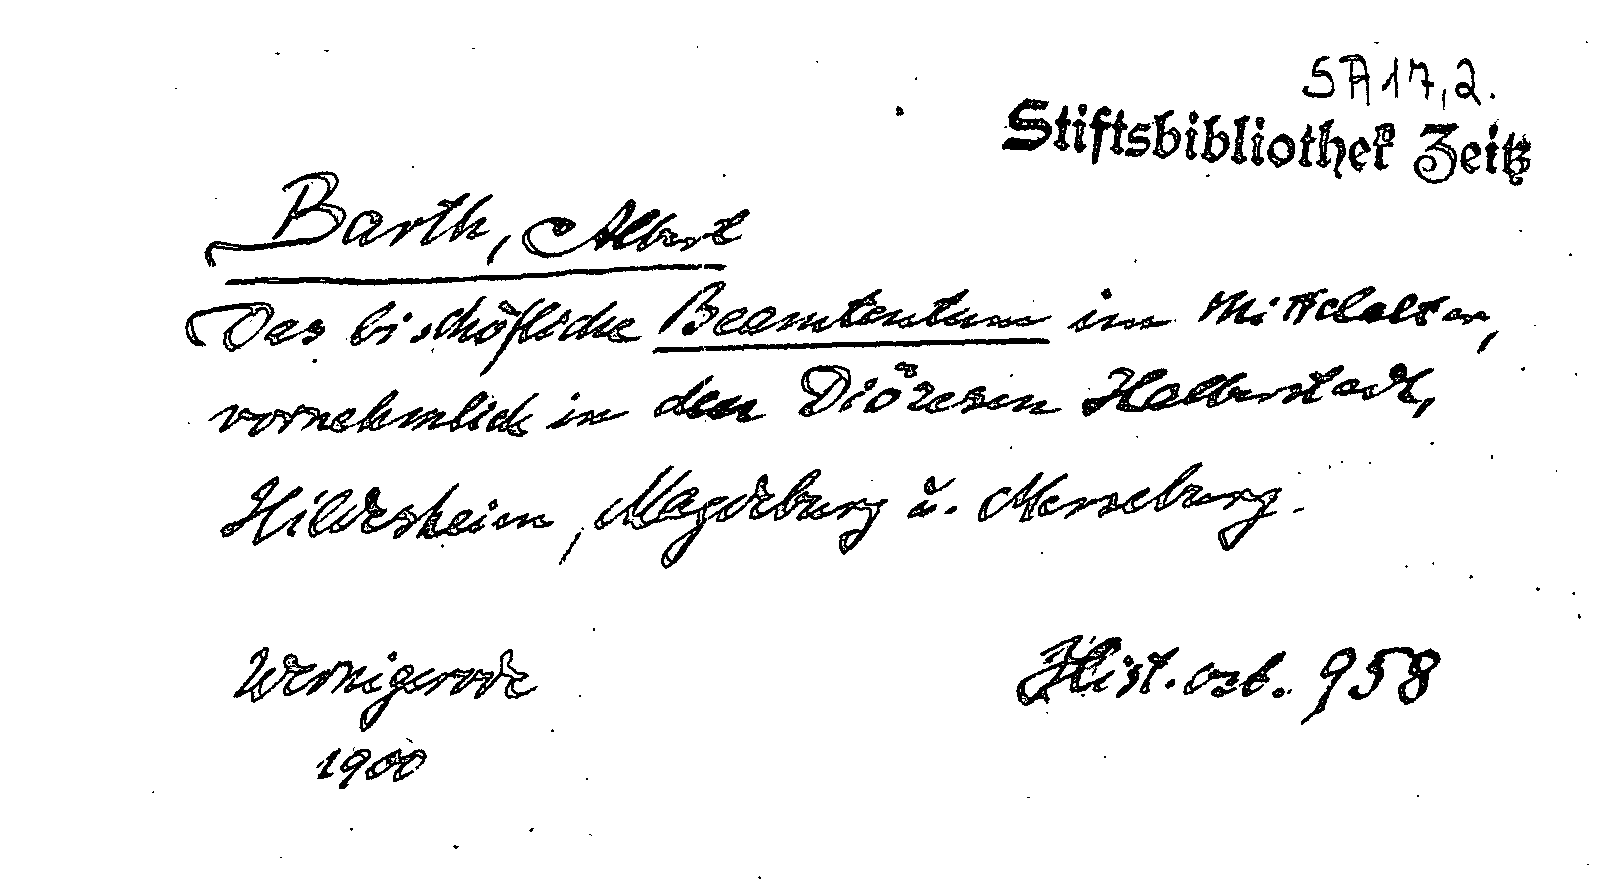 SA 17,2.
Stiftsbibliothek Zeitz
Barth, Albert
Das bischöfliche Beamtentum im Mittelalter,
vornehmlich in den Diözesen Halberstadt,
Hildesheim, Magdeburg u. Merseburg.
Wernigerode
Hist. ost. 958
1900